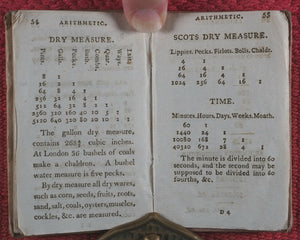 54 ARITHMETIC.
DRY MEASURE.
Pints.
Galls.
Pecks.
Bush.
Comb.
Quar.
Ways.
Lasts
8 1
16 2 1
64 8 4 1
256 32 16 4 1
512 64 32 8 2 1
2560 320 160 40 10 5 1
5120 640 320 80 20 10 2 1
The gallon dry measure,
contains 268⅘ cubic inches.
At London 36 bushels of coals
make a chaldron. A bushel
water measure is five pecks.
By dry measure all dry wares,
such as corn, seeds, fruits, roots,
sand, salt, coals, oysters, muscles,
cockles, &c. are measured.
ARITHMETIC. 55
SCOTS DRY MEASURE.
Lippies. Pecks. Firlots. Bolls. Chaldr.
4 1
16 4 1
64 16 4 1
1024 256 64 16 1
TIME.
Minutes. Hours. Days. Weeks. Month.
60 1
1440 24 1
10080 168 7 1
40320 672 28 4 1
The minute is divided into 60
seconds, and the second may be
supposed to be divided into 60
fourths, &c.
D 4